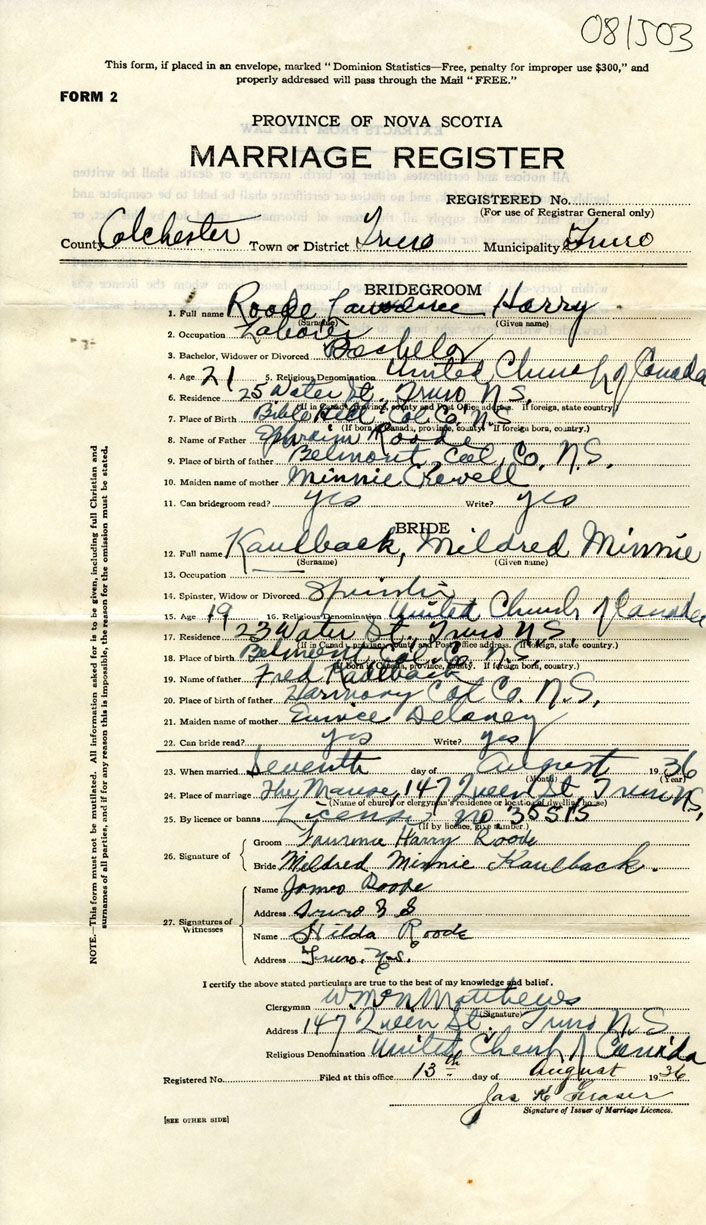 081503
This form, if placed in an envelope, marked "Dominion Statistics—Free, penalty for improper use $300," and
properly addressed will pass through the Mail "FREE."
FORM 2
PROVINCE OF NOVA SCOTIA
MARRIAGE REGISTER
REGISTERED No.
(For use of Registrar General only)
County Colchester Town or District Truro Municipality Truro
BRIDEGROOM
1. Full name Roode Lawrence Harry
(Surname) (Given name)
2. Occupation Laborer
3. Bachelor, Widower or Divorced Bachelor
4. Age 21 5. Religious Denomination United Church of Canada
6. Residence 25 Water St., Truro N.S.
(If in Canada, province, county and Post Office address. If foreign, state country)
7. Place of Birth Bible Hill, Col. Co. N.S.
(If born in Canada, province, county. If foreign born, country.)
8. Name of Father Ephraim Roode
9. Place of birth of father Belmont, Col. Co. N.S.
10. Maiden name of mother Minnie Crowell
11. Can bridegroom read? yes Write? yes
BRIDE
12. Full name Kaulback, Mildred Minnie
(Surname) (Given name)
13. Occupation
14. Spinster, Widow or Divorced Spinster
15. Age 19 16. Religious Denomination United Church of Canada
17. Residence 23 Water St., Truro N.S.
(If in Canada, province, county and Post Office address. If foreign, state country.)
18. Place of birth Belmont, Col. Co. N.S.
(If born in Canada, province, county. If foreign born, country.)
19. Name of father Fred Kaulback
20. Place of birth of father Harmony Col Co. N.S.
21. Maiden name of mother Eunice Delaney
22. Can bride read? yes Write? yes
23. When married Seventh day of August 1936
(Month) (Year)
24. Place of marriage The Manse, 147 Queen St., Truro N.S.
(Name of church or clergyman's residence or location of dwelling house)
25. By licence or banns License no 35515
(If by licence, give number.)
26. Signature of
Groom Laurence Harry Roode
Bride Mildred Minnie Kaulback.
27. Signatures of Witnesses
Name James Roode
Address Truro N S
Name Hilda Roode
Address Truro. N.S.
I certify the above stated particulars are true to the best of my knowledge and belief.
Clergyman Wm McN Matthews
(Signature)
Address 147 Queen St., Truro N.S
Religious Denomination United Church of Canada
Registered No. Filed at this office 13th day of August 1936
Jas K Fraser
Signature of Issuer of Marriage Licences.
[SEE OTHER SIDE]
NOTE.—This form must not be mutilated. All information asked for is to be given, including full Christian and
surnames of all parties, and if for any reason this is impossible, the reason for the omission must be stated.